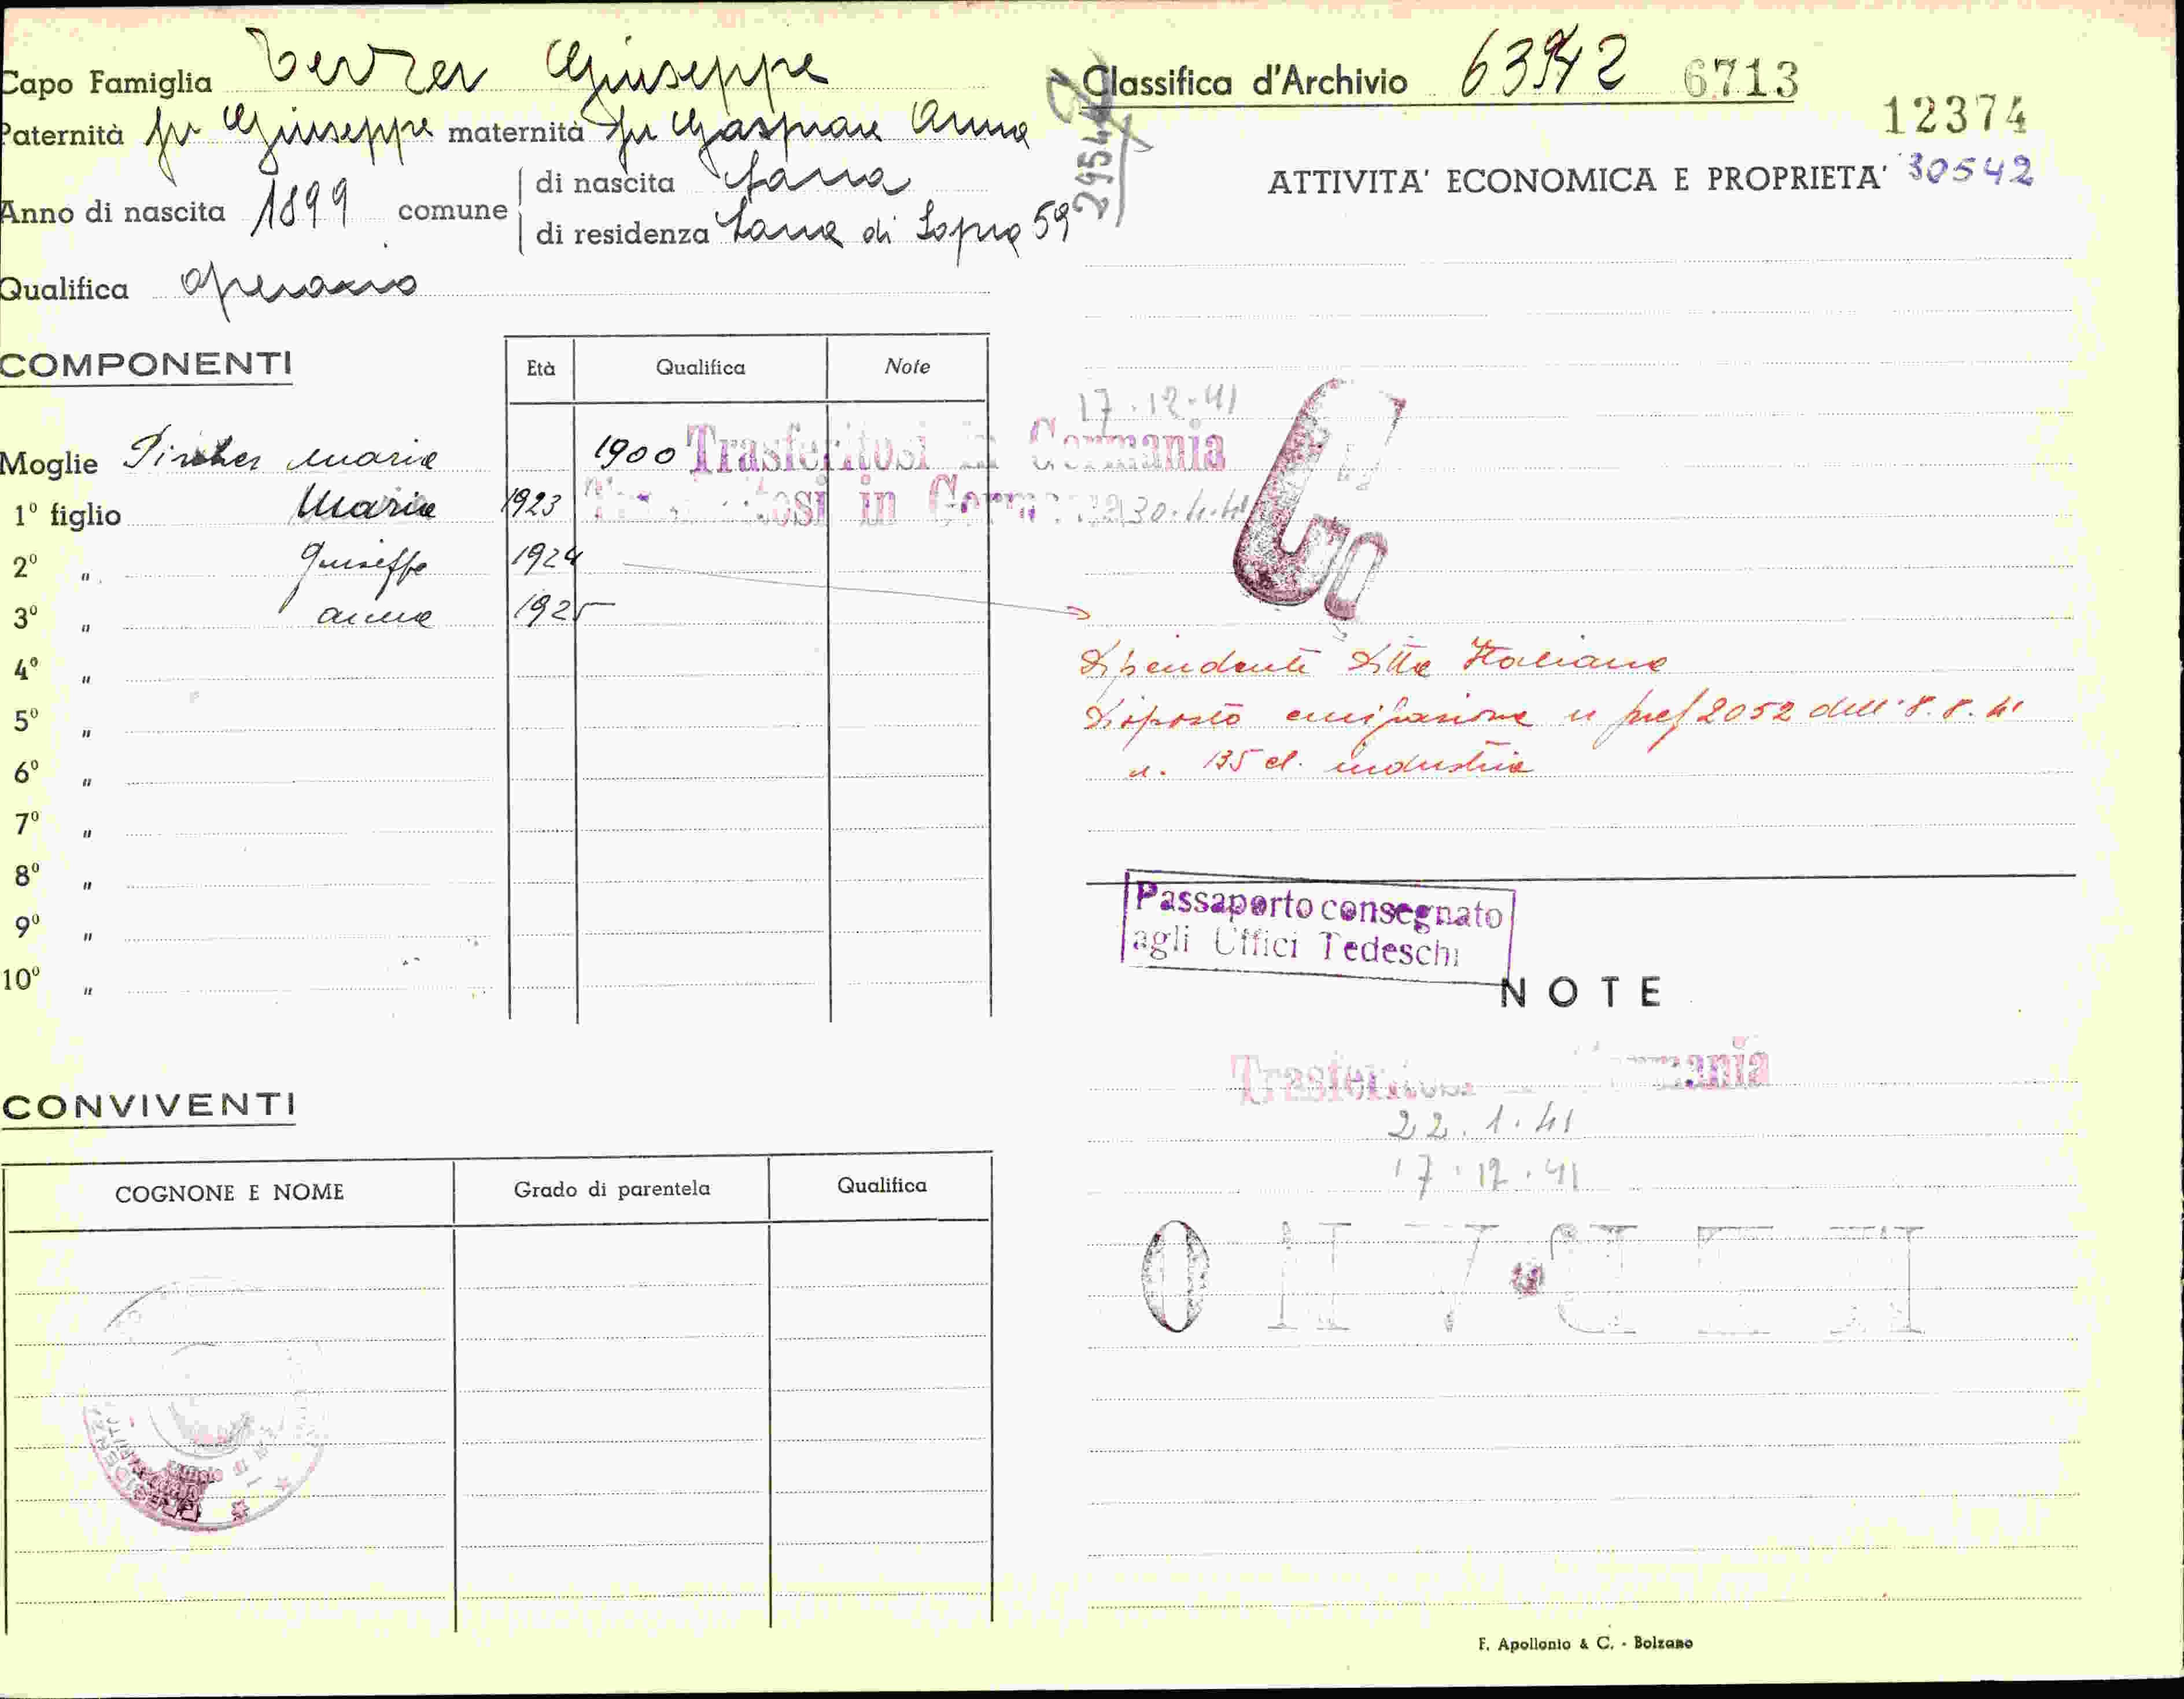 Capo Famiglia Terzer Giuseppe
Paternità fu Giuseppe maternità fu Gaspare Anna
Anno di nascita 1899 comune di nascita Lana
di residenza Lana di Sopra 59
Qualifica operaio
COMPONENTI
Età Qualifica Note
Moglie Pircher Maria 1900 Trasferitosi in Germania 17.12.41
1º figlio Maria 1923 Trasferitosi in Germania 30.4.41
2º " Giuseppe 1924
3º " Anna 1925
4º "
5º "
6º "
7º "
8º "
9º "
10º "
CONVIVENTI
COGNONE E NOME Grado di parentela Qualifica
Classifica d'Archivio 63942 6713
12374
29542
ATTIVITA' ECONOMICA E PROPRIETA' 30542
Dipendente Ditta Italiana
Disposto emigrazione n pref 2052 dell' 8.8.41
n. 135 cl. industria
Passaporto consegnato
agli Uffici Tedeschi
NOTE
Trasferitosi in Germania
22.1.41
17.12.41
F. Apollonio & C. - Bolzano